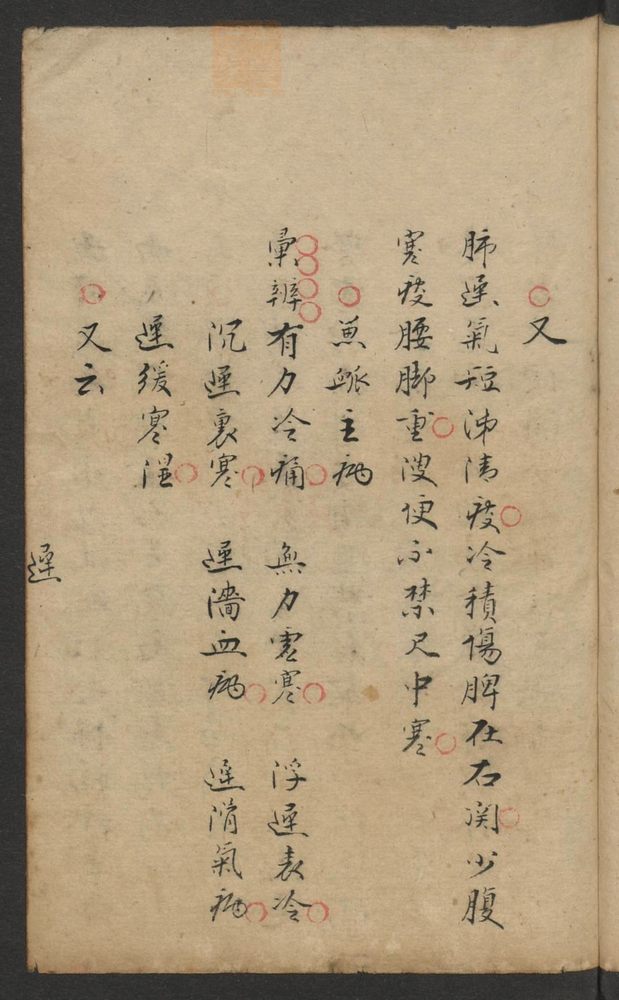 ○又
肺遲氣短涕清痰○冷積傷脾在右関○少腹
寒疫腰脚重○溲便不禁尺中寒○
○兼脈主病
彙辨○○○○有力冷痛○ 無力虛寒○ 浮遲表冷○
沉遲裏寒○ 遲濇血病○ 遲滑氣病○
遲緩寒濕○
○又云
遲